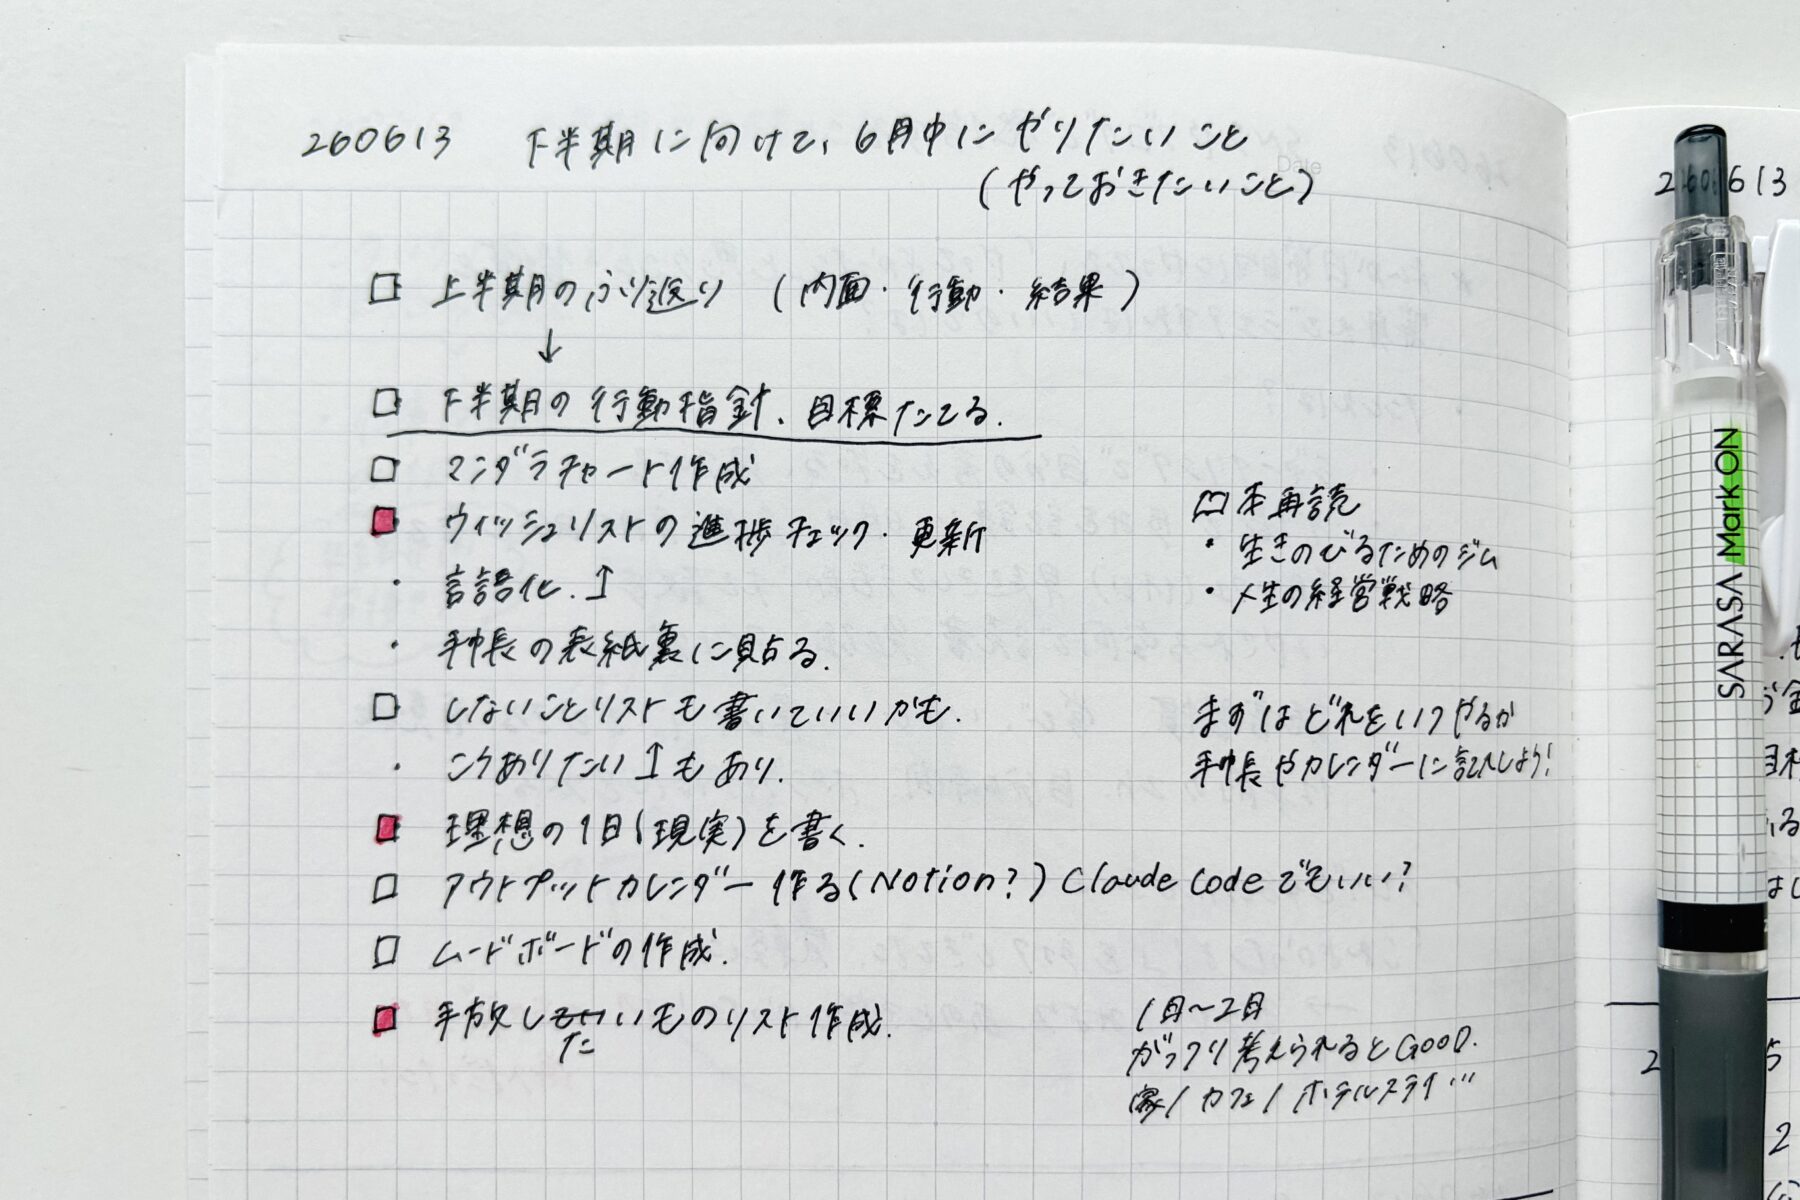 260613 下半期に向けて、6月中にやりたいこと
(やっておきたいこと)
Date
□ 上半期のふり返り (内面・行動・結果)
↓
□ 下半期の行動指針、目標たてる.
□ マンダラチャート作成
ウィッシュリストの進捗チェック・更新
・ 言語化.↑
・ 手帳の表紙裏に貼る.
□ しないことリストも書いていいかも.
・ こうありたい↑もあり.
理想の1日(現実)を書く.
□ アウトプットカレンダー作る(Notion?) Claude Codeでもいい?
□ ムードボードの作成.
手放したいものリスト作成.
本再読
・ 生きのびるためのジム
・ 人生の経営戦略
まずはどれをいつやるか
手帳やカレンダーに記入しよう!
1日〜2日
がっつり考えられるとGOOD.
家/カフェ/ホテルステイ…
260613
SARASA Mark ON